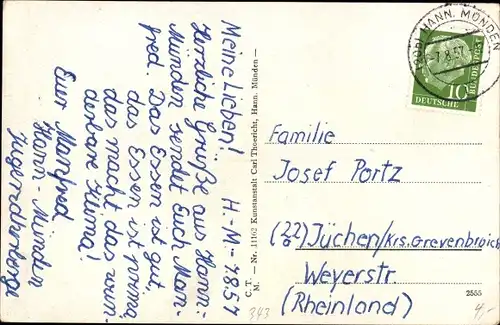 Meine Lieben! H.-M.-7.8.54
Herzliche Grüße aus Hann:
Münden sendet Euch Man-
fred. Das Essen ist gut,
das Essen ist prima,
das macht das wun-
derbare Klima!
Euer Manfred
Hann-Münden
Jugendherberge
C. T.
M. — Nr. 11162 Kunstanstalt Carl Thoericht, Hann. Münden —
HANN. MÜNDEN
10
DEUTSCHE
BUNDESPOST
Familie
Josef Portz
(22) Jüchen/Krs. Grevenbroich
Weyerstr.
(Rheinland)
2555
343
4,-